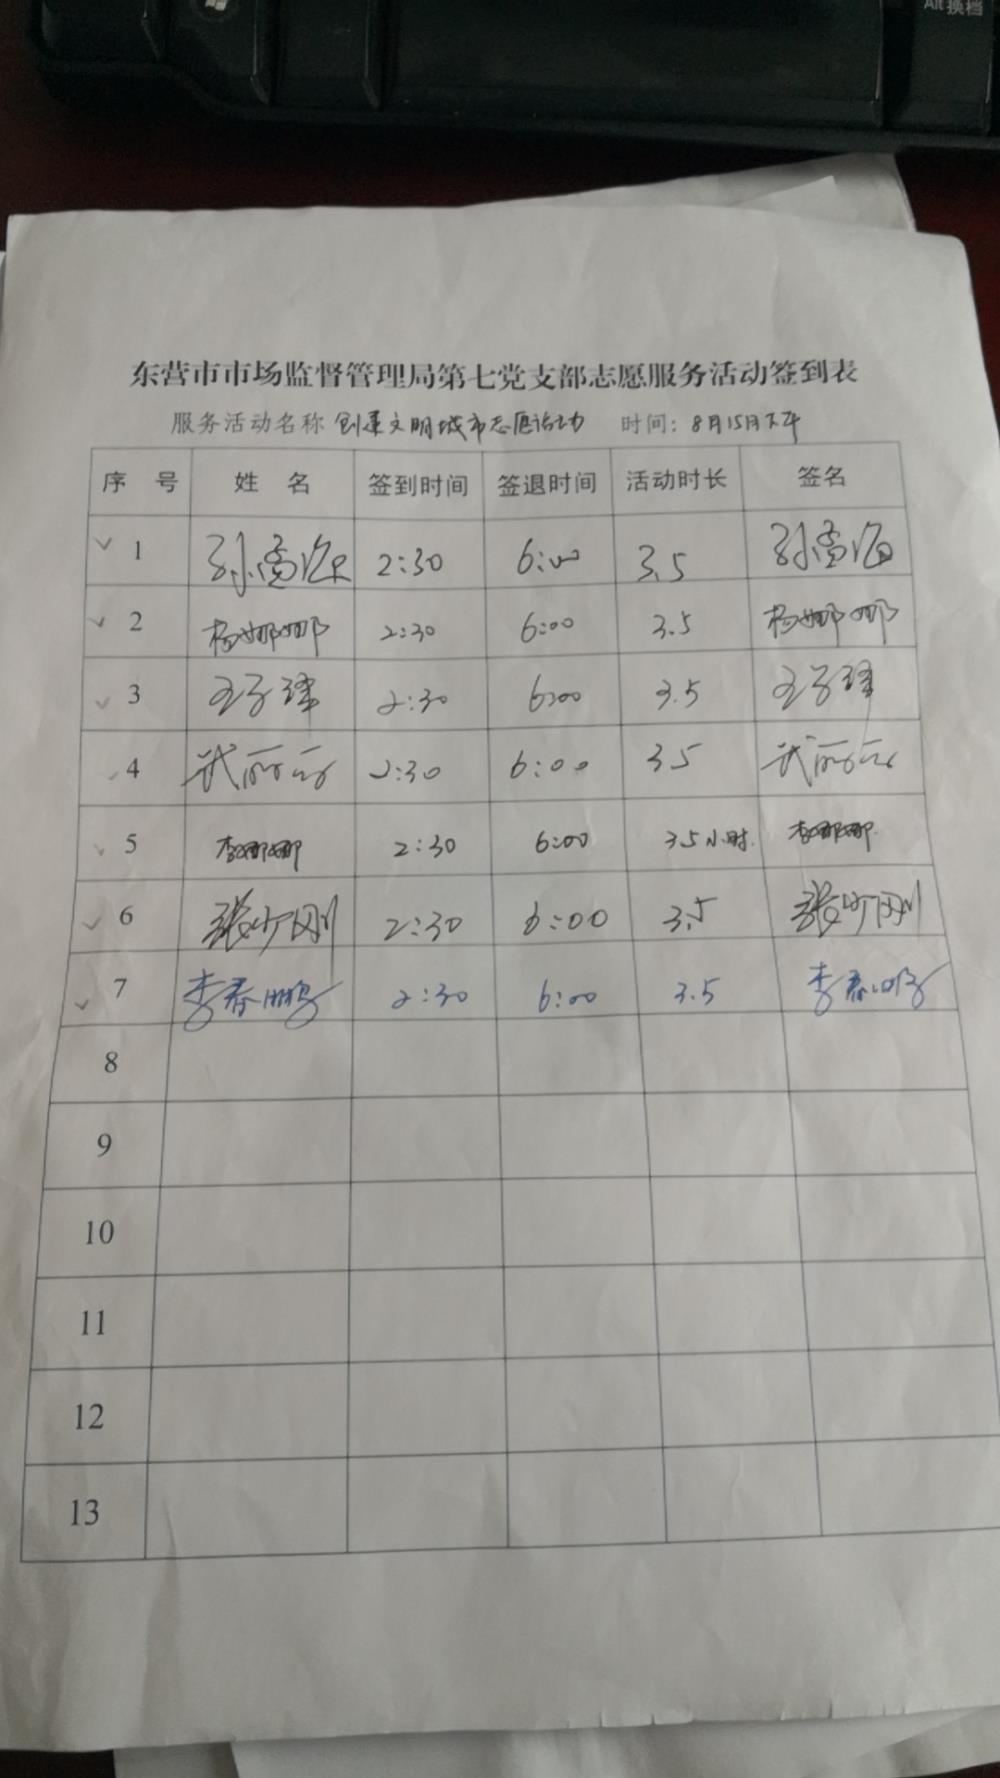 Alt 换档
东营市市场监督管理局第七党支部志愿服务活动签到表
服务活动名称 创建文明城市志愿活动 时间: 8月15日下午
序 号 姓 名 签到时间 签退时间 活动时长 签名
1 2:30 6:00 3.5
2 杨娜娜 2:30 6:00 3.5 杨娜娜
3 王子瑾 2:30 6:00 3.5 王子瑾
4 武丽丽 2:30 6:00 3.5 武丽丽
5 李娜娜 2:30 6:00 3.5小时. 李娜娜
6 张少刚 2:30 6:00 3.5 张少刚
7 李春鹏 2:30 6:00 3.5 李春鹏
8
9
10
11
12
13